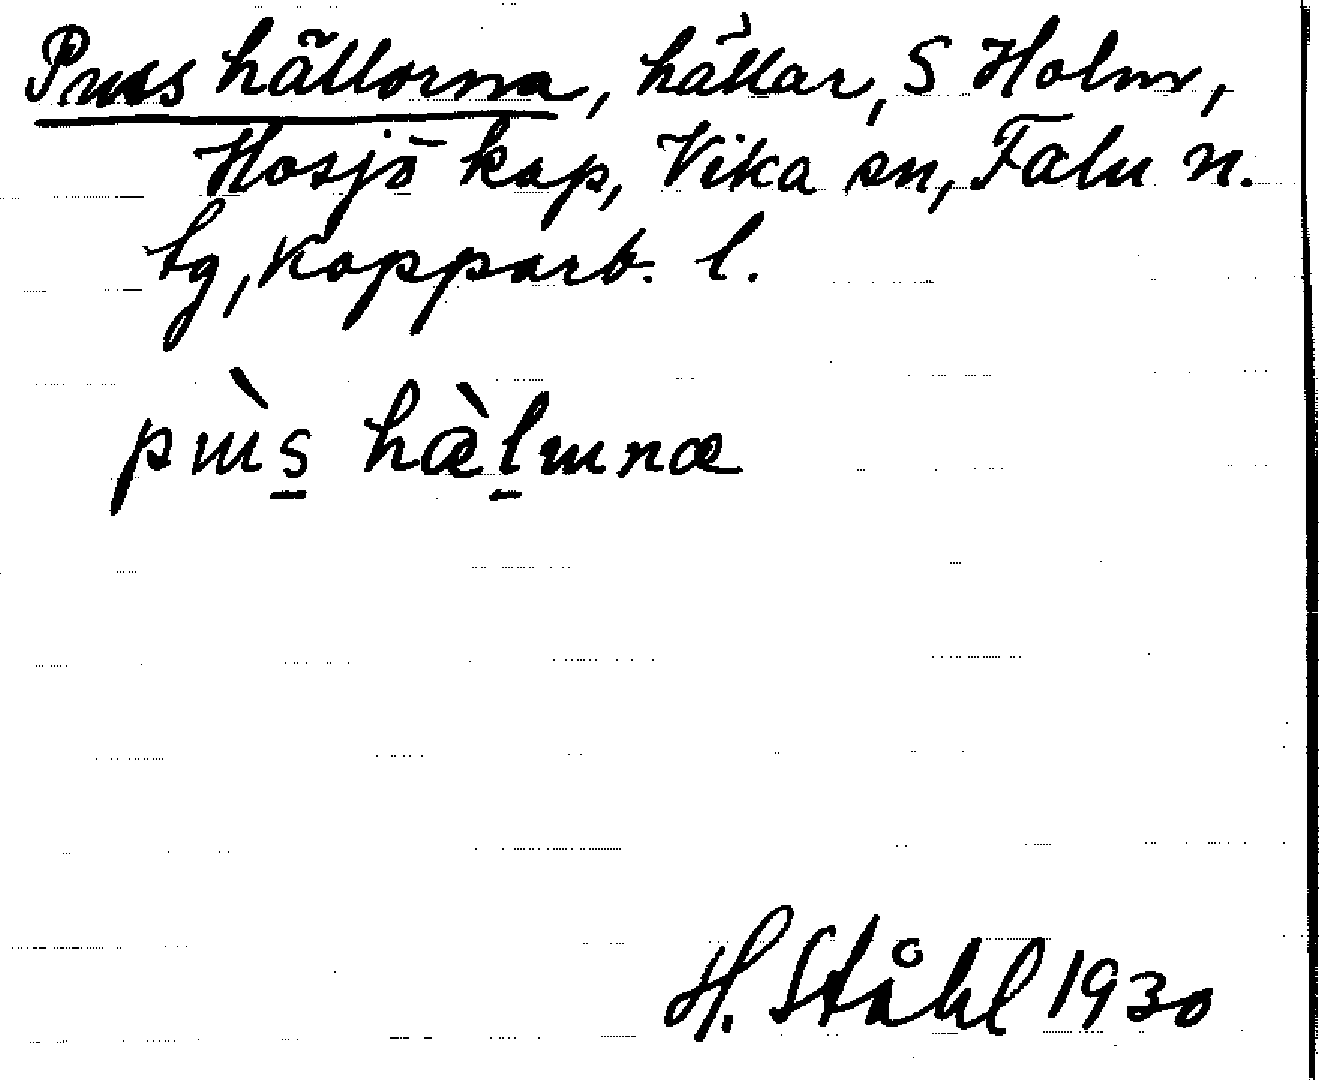 Puss hällorna, hällar, S Holm,
Hosjö kap, Vika sn, Falu n.
tg, Kopparb. l.
H. Ståhl 1930